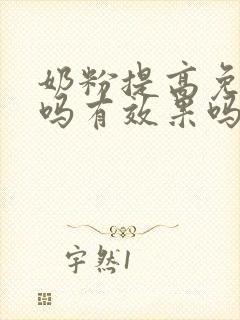 奶粉提高免
吗有效果吗
宇然1